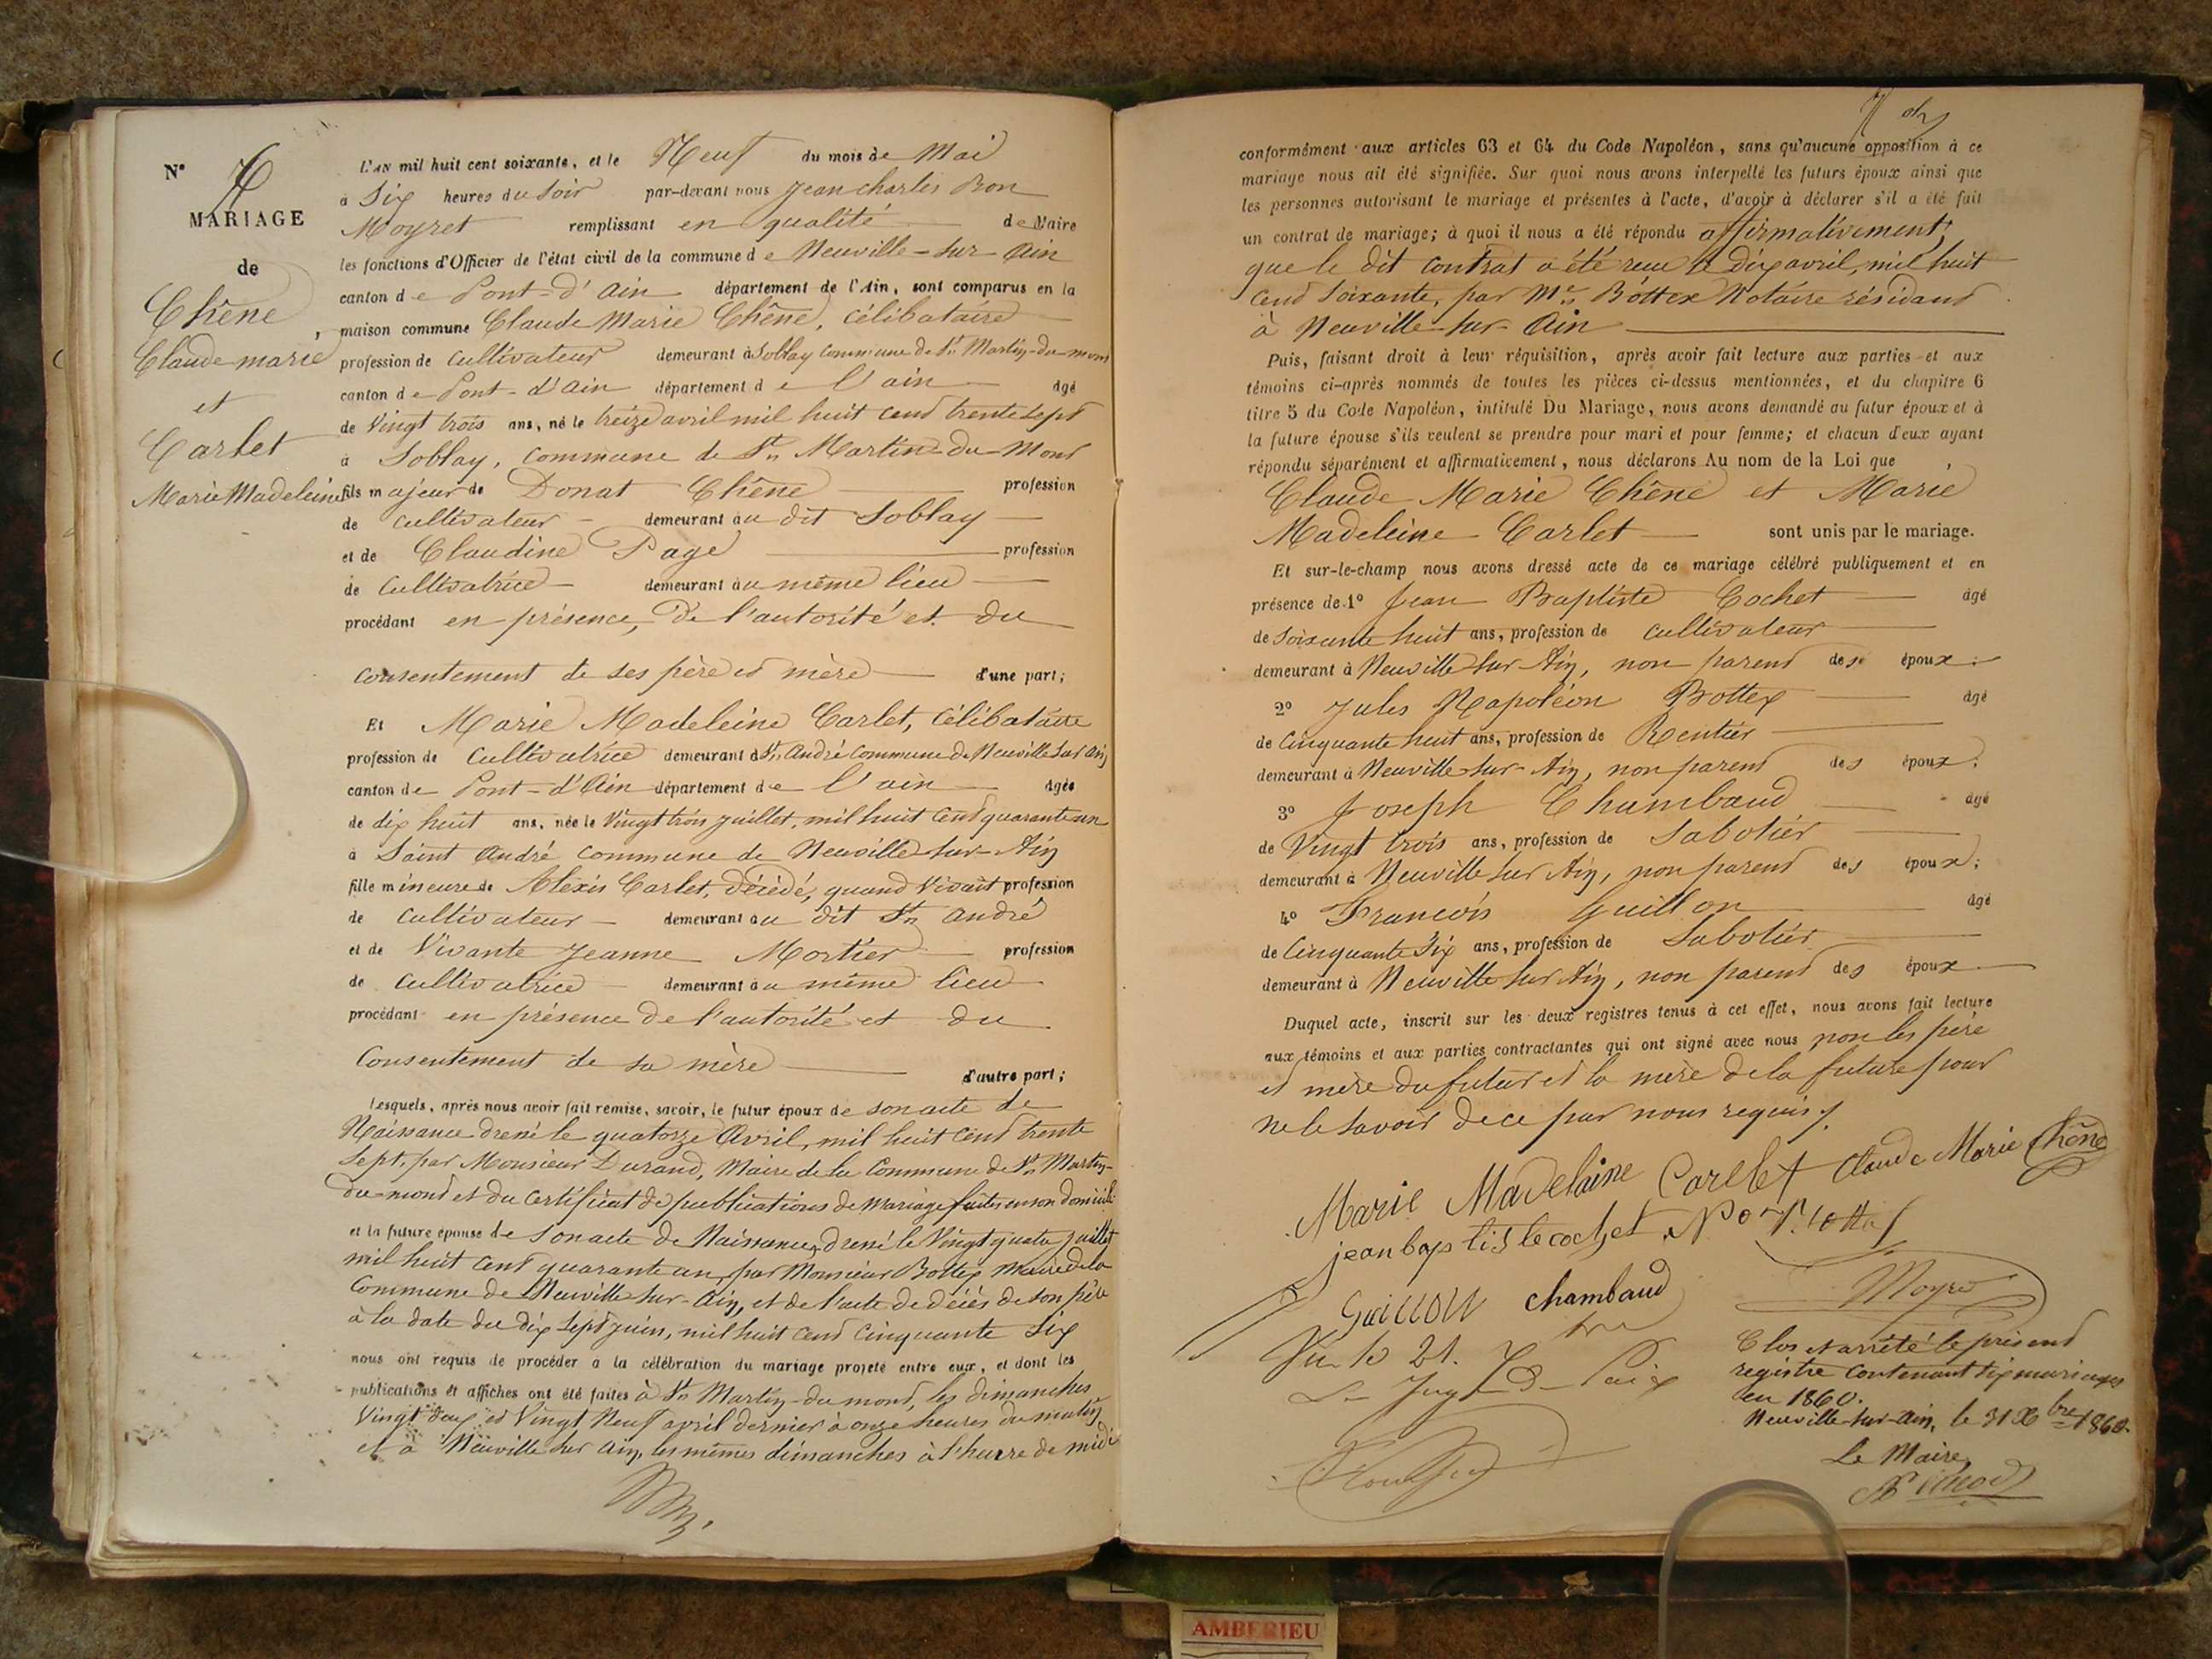 N°
MARIAGE
de
Chêne
Claude marie
et
Carlet
Marie Madeleine
L'AN mil huit cent soixante, et le Neuf du mois de Mai
à Six heures du Soir par-devant nous Jean charles Bon
Moyret remplissant en qualité de Maire
les fonctions d'Officier de l'état civil de la commune de Neuville-sur-Ain
canton de Pont-d'Ain département de l'Ain, sont comparus en la
maison commune Claude Marie Chêne, célibataire
profession de cultivateur demeurant à Soblay commune de St Martin-du-mont
canton de Pont-d'Ain département de l'ain âgé
de Vingt trois ans, né le treize avril mil huit cent trente sept
à Soblay, commune de St Martin-du-Mont
fils majeur de Donat Chêne profession
de cultivateur demeurant au dit Soblay
et de Claudine Page profession
de cultivatrice demeurant au même lieu
procédant en présence, De l'autorité et du
consentement de ses père et mère d'une part;
Et Marie Madeleine Carlet, célibataire
profession de Cultivatrice demeurant à St André commune de Neuville Sur Ain
canton de Pont-d'Ain département de l'ain âgée
de dix huit ans, née le Vingt trois juillet, mil huit cent quarante un
à Saint André commune de Neuville sur-Ain
fille mineure de Alexis Carlet, décédé, quand Vivait profession
de cultivateur demeurant au dit St André
et de Vivante Jeanne Mortier profession
de cultivatrice demeurant au même lieu
procédant en présence de l'autorité et du
Consentement de sa mère d'autre part;
Lesquels, après nous avoir fait remise, savoir, le futur époux de son acte de
Naissance dressé le quatorze Avril, mil huit cent trente
Sept, par Monsieur Durand, Maire de la Commune de St Martin-
du-mont et du certificat de publications de mariage faites en son domicile
et la future épouse de Son acte de Naissance, dressé le Vingt quatre juillet
mil huit cent quarante un, par Monsieur Bottex maire de la
Commune de Neuville sur-Ain, et de l'acte de décès de son père
à la date du dix sept juin, mil huit cent cinquante six
nous ont requis de procéder à la célébration du mariage projeté entre eux, et dont les
publications et affiches ont été faites à St Martin-du-mont, les dimanches
Vingt deux et Vingt Neuf avril dernier à onze heures du matin
et à Neuville sur Ain, les mêmes dimanches à l'heure de midi
conformément aux articles 63 et 64 du Code Napoléon, sans qu'aucune opposition à ce
mariage nous ait été signifiée. Sur quoi nous avons interpellé les futurs époux ainsi que
les personnes autorisant le mariage et présentes à l'acte, d'avoir à déclarer s'il a été fait
un contrat de mariage; à quoi il nous a été répondu affirmativement,
que le dit contrat a été reçu le dix avril, mil huit
cent soixante, par Me Bottex Notaire résidant
à Neuville-sur-Ain
Puis, faisant droit à leur réquisition, après avoir fait lecture aux parties et aux
témoins ci-après nommés de toutes les pièces ci-dessus mentionnées, et du chapitre 6
titre 5 du Code Napoléon, intitulé Du Mariage, nous avons demandé au futur époux et à
la future épouse s'ils veulent se prendre pour mari et pour femme; et chacun d'eux ayant
répondu séparément et affirmativement, nous déclarons Au nom de la Loi que
Claude Marie Chêne et Marie
Madeleine Carlet sont unis par le mariage.
Et sur-le-champ nous avons dressé acte de ce mariage célébré publiquement et en
présence de 1° Jean Baptiste Cochet âgé
de soixante huit ans, profession de cultivateur
demeurant à Neuville sur Ain, non parent des époux;
2° Jules Napoléon Bottex âgé
de Cinquante huit ans, profession de Rentier
demeurant à Neuville-sur-Ain, non parent des époux;
3° Joseph Chambaud âgé
de Vingt trois ans, profession de Sabotier
demeurant à Neuville sur Ain, non parent des époux;
4° François Guillon âgé
de Cinquante Six ans, profession de Sabotier
demeurant à Neuville sur Ain, non parent des époux
Duquel acte, inscrit sur les deux registres tenus à cet effet, nous avons fait lecture
aux témoins et aux parties contractantes qui ont signé avec nous non les père
et mère du futur et la mère de la future pour
ne le savoir de ce par nous requis.
Marie Madelaine Carlet Claude Marie Chêne
jean baptiste cochet
Moyret
Guillon chambaud
Vu le 21.
Le Juge de Paix
Clos et arrêté le présent
registre contenant six mariages
en 1860.
Neuville-sur-Ain, le 31 Xbre 1860.
Le Maire,
AMBERIEU